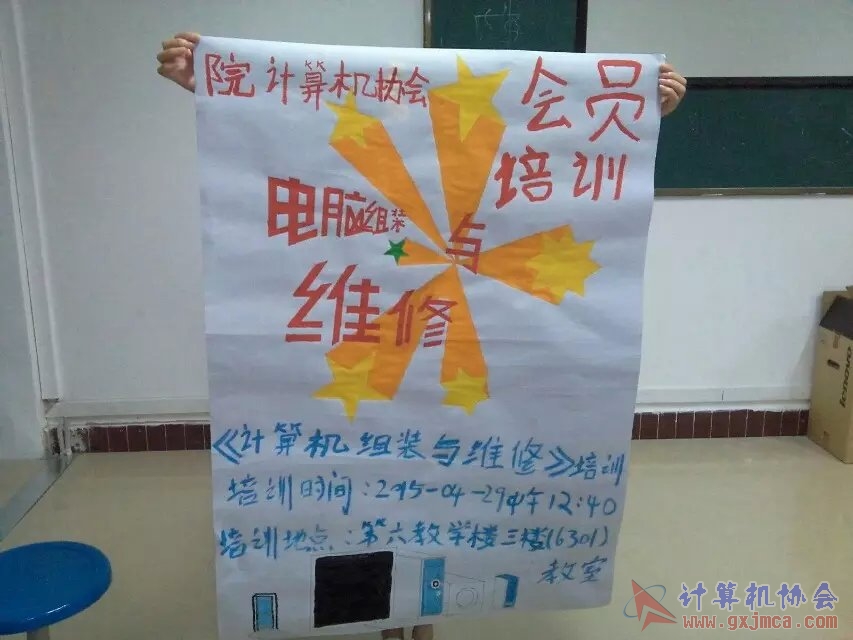 院计算机协会
会员
培训
电脑组装
与
维修
《计算机组装与维修》培训
培训时间：2015-04-29中午12:40
培训地点：第六教学楼三楼(6301)
教室
lenovo
计算机协会
www.gxjmca.com